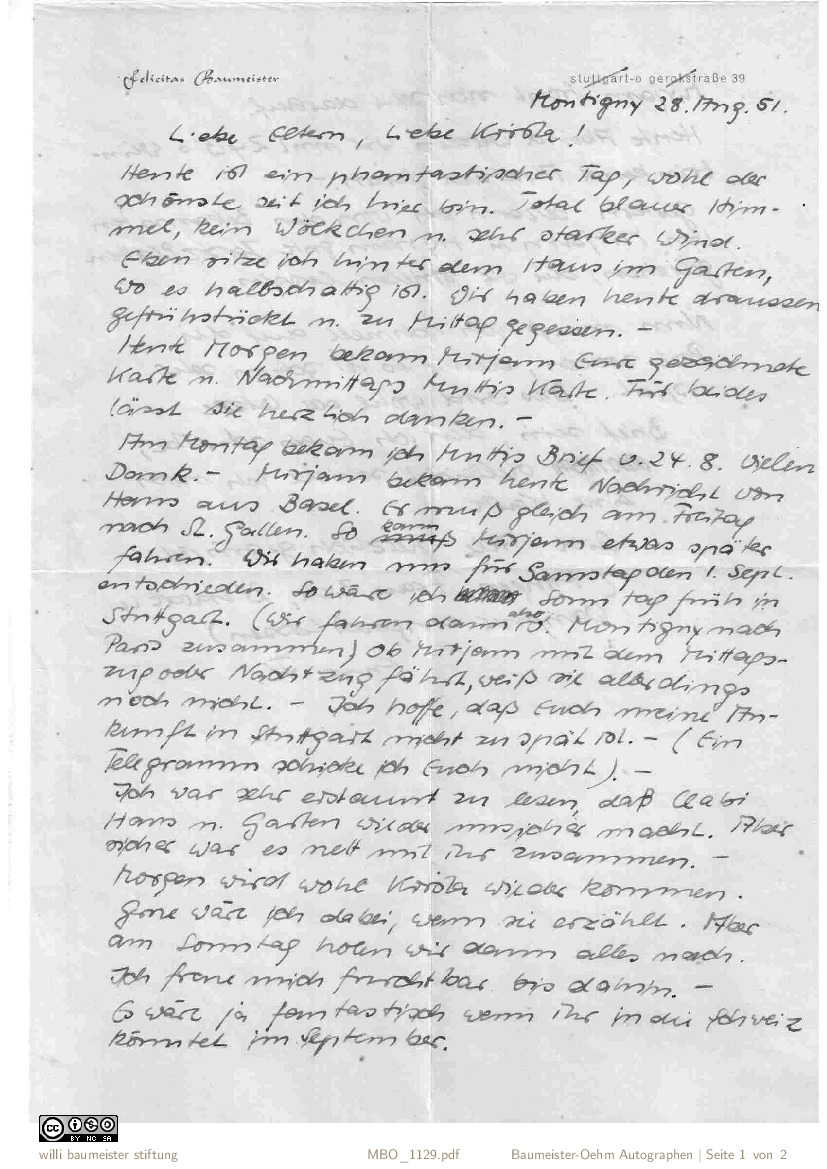 Felicitas Baumeister
stuttgart-o gerokstraße 39
Montigny 28. Aug. 51.
Liebe Eltern, Liebe Krista!
Heute ist ein phantastischer Tag, wohl der
schönste seit ich hier bin. Total blauer Him-
mel, kein Wölkchen u. sehr starker Wind.
Eben sitze ich hinter dem Haus im Garten,
wo es halbschattig ist. Wir haben heute draussen
gefrühstückt u. zu Mittag gegessen. –
Heute Morgen bekam Mirjam Eure gezeichnete
Karte u. Nachmittags Muttis Karte. Für beides
lässt sie herzlich danken. –
Am Montag bekam ich Muttis Brief v. 24. 8. Vielen
Dank. – Mirjam bekam heute Nachricht von
Hans aus Basel. Er muß gleich am Freitag
nach St. Gallen. So kann Mirjam etwas später
fahren. Wir haben uns für Samstag den 1. Sept.
entschieden. So wäre ich Sonntag früh in
Stuttgart. (Wir fahren dann also v. Montigny nach
Paris zusammen) Ob Mirjam mit dem Mittags-
zug oder Nachtzug fährt, weiß sie allerdings
noch nicht. – Ich hoffe, daß Euch meine An-
kunft in Stuttgart nicht zu spät ist. – (Ein
Telegramm schicke ich Euch nicht). –
Ich war sehr erstaunt zu lesen, daß
Haus u. Garten wieder unsicher macht. Aber
sicher war es nett mit ihr zusammen. –
Morgen wird wohl Krista wieder kommen.
Gerne wäre ich dabei, wenn sie erzählt. Aber
am Sonntag holen wir dann alles nach.
Ich freue mich furchtbar bis dahin. –
Es wäre ja fantastisch wenn ihr in die Schweiz
könntet im September.
CC BY NC SA
willi baumeister stiftung
MBO_1129.pdf
Baumeister-Oehm Autographen | Seite 1 von 2